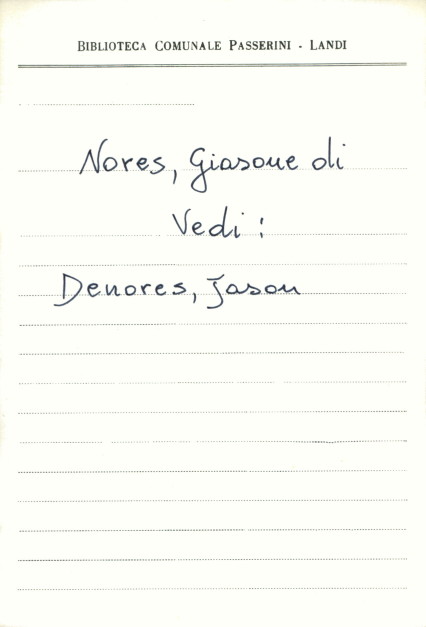 BIBLIOTECA COMUNALE PASSERINI - LANDI
Nores, Giasone di
Vedi :
Denores, Jason